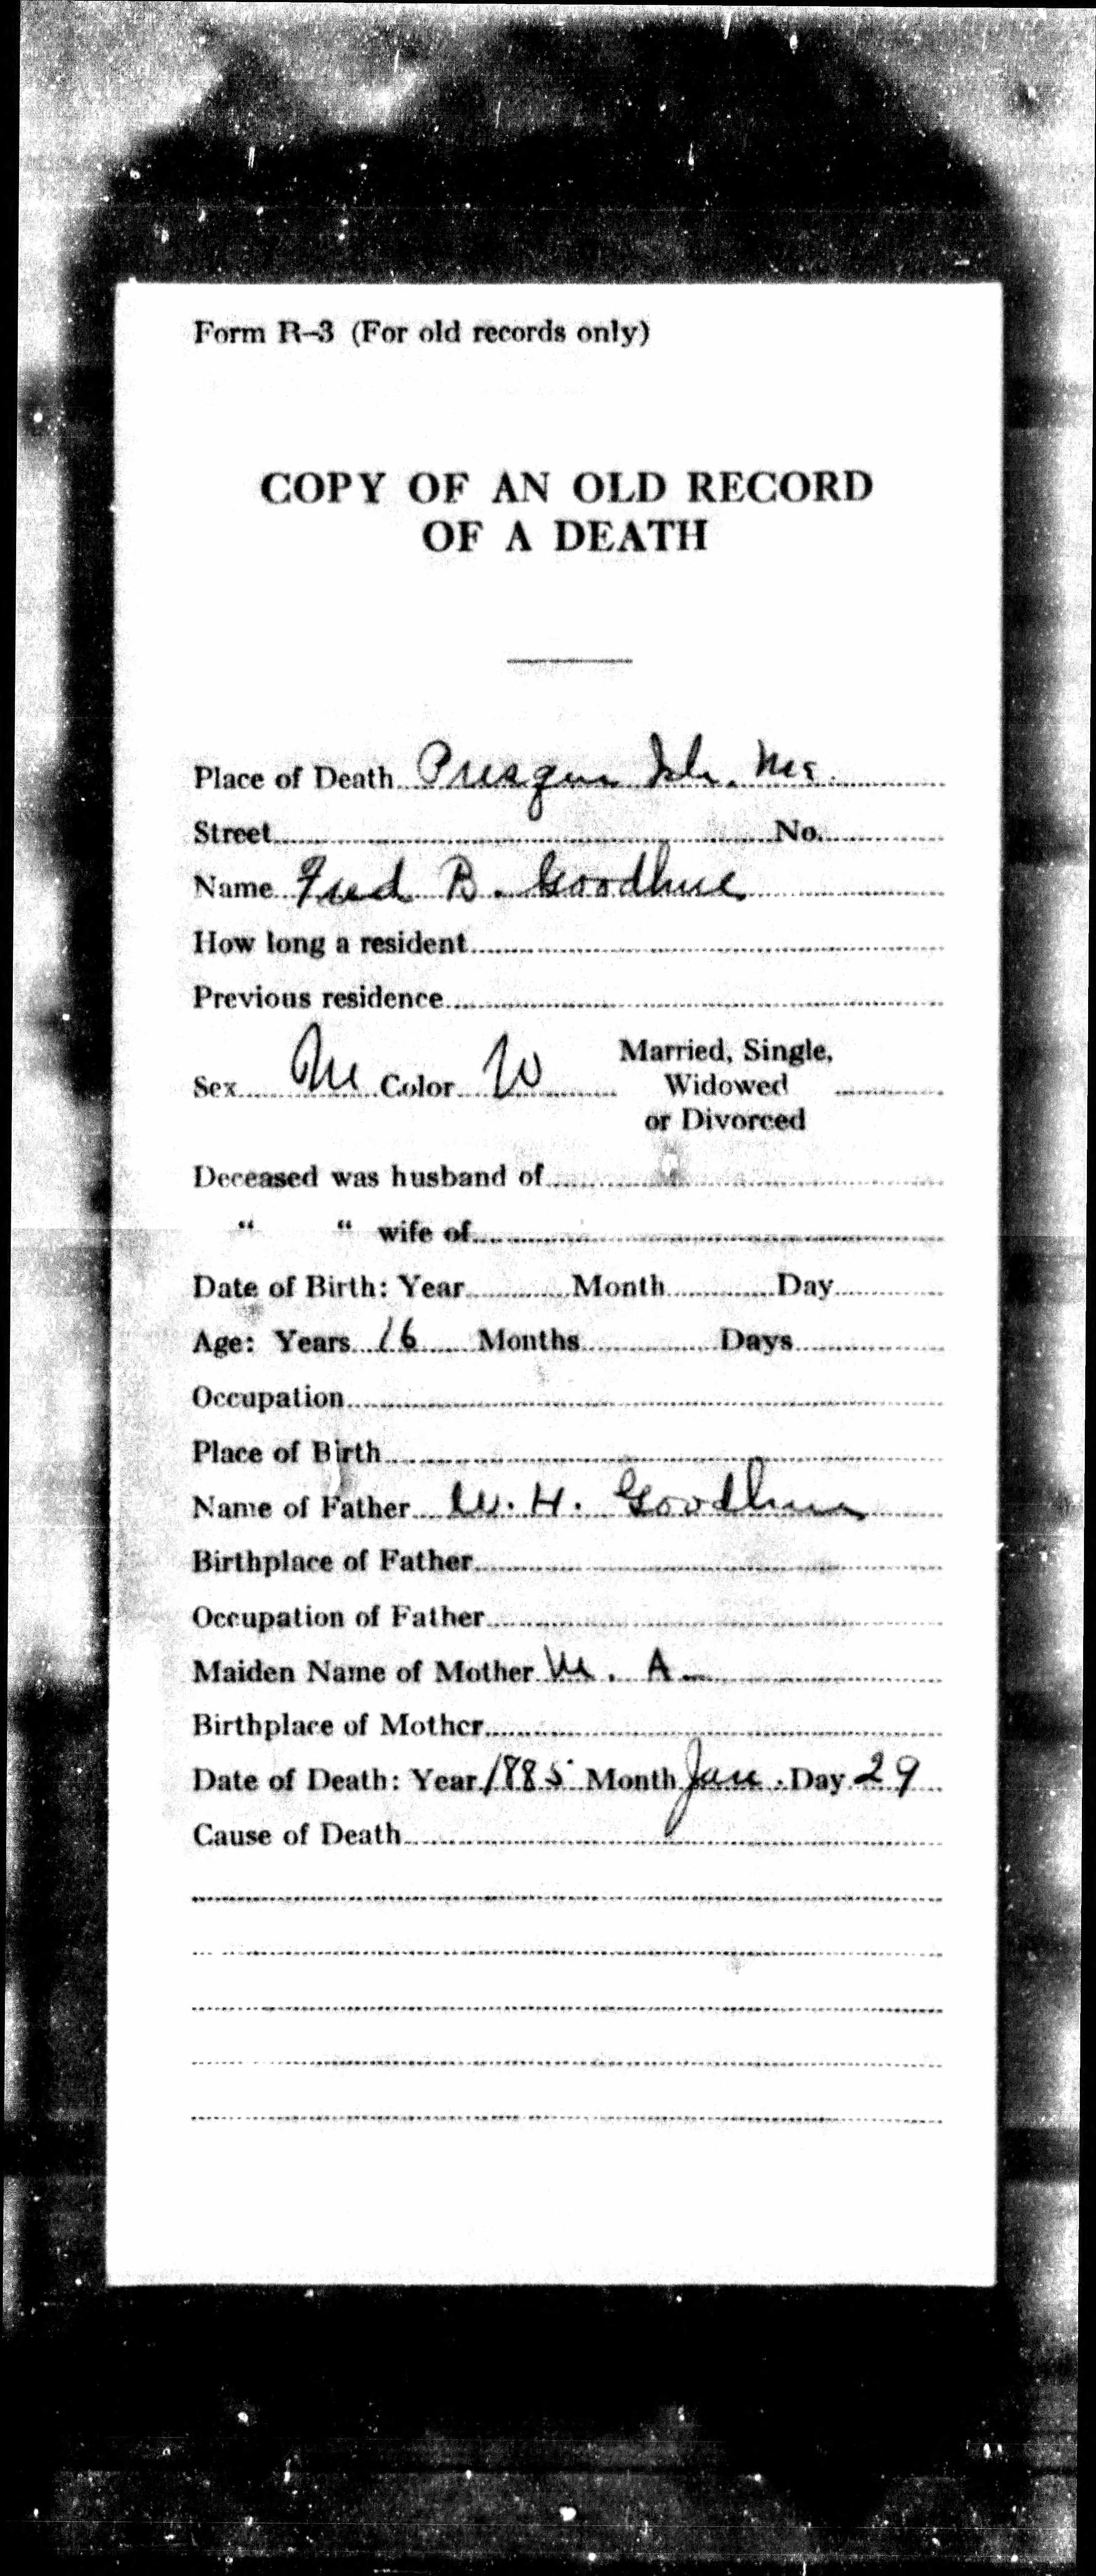 Form R-3 (For old records only)
COPY OF AN OLD RECORD
OF A DEATH
Place of Death Presque Isle. Me.
Street No.
Name Fred B. Goodhue
How long a resident
Previous residence
Sex M Color W Married, Single, Widowed or Divorced
Deceased was husband of
" " wife of
Date of Birth: Year Month Day
Age: Years 16 Months Days
Occupation
Place of Birth
Name of Father W. H. Goodhue
Birthplace of Father
Occupation of Father
Maiden Name of Mother M. A.
Birthplace of Mother
Date of Death: Year 1885 Month Jan. Day 29
Cause of Death